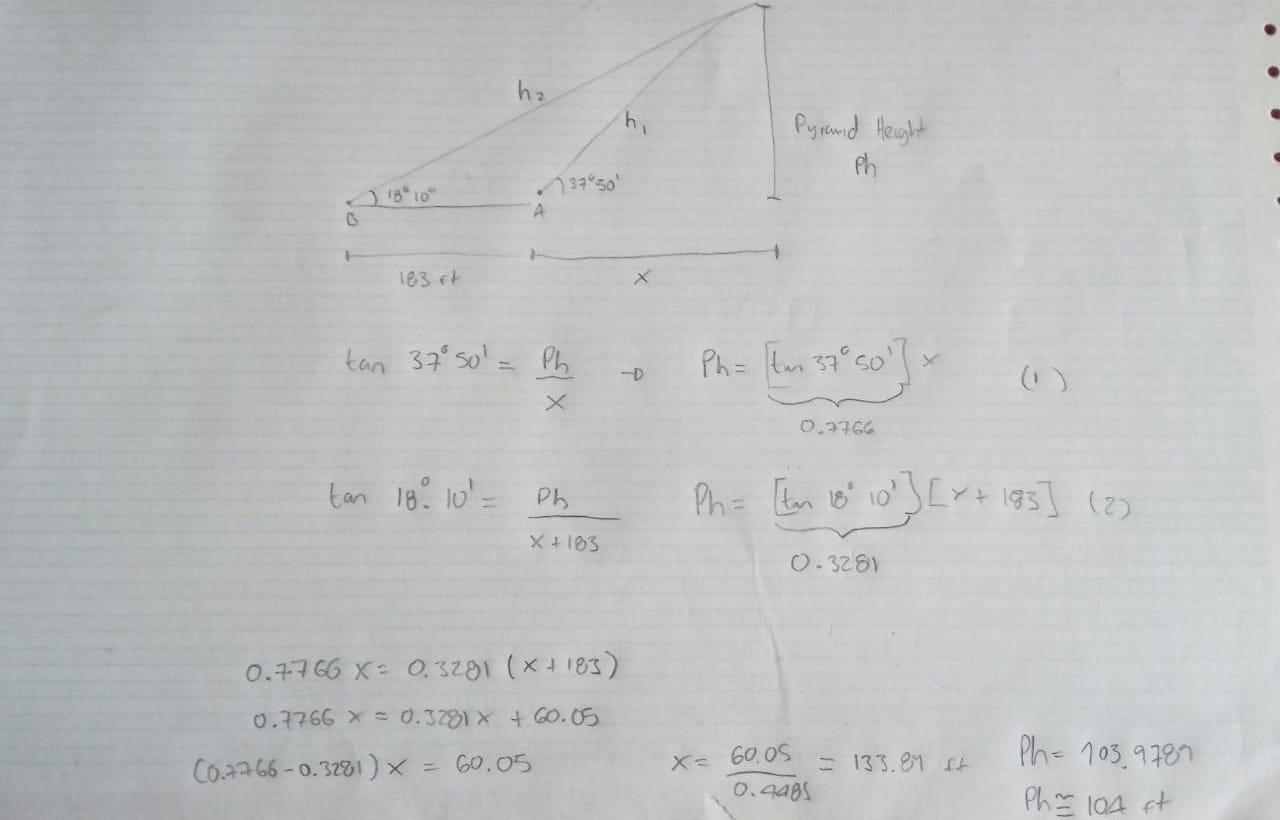 h₂
h₁
Pyramid Height
Ph
18° 10°
37° 50'
B
A
183 ft
x
tan 37° 50' = Ph / x → Ph = [tan 37° 50'] x (1)
0.7766
tan 18° 10' = Ph / x + 183 Ph = [tan 18° 10'] [x + 183] (2)
0.3281
0.7766 x = 0.3281 (x + 183)
0.7766 x = 0.3281x + 60.05
(0.7766 - 0.3281) x = 60.05 x = 60.05 / 0.4485 = 133.89 ft Ph = 103.9789
Ph ≅ 104 ft